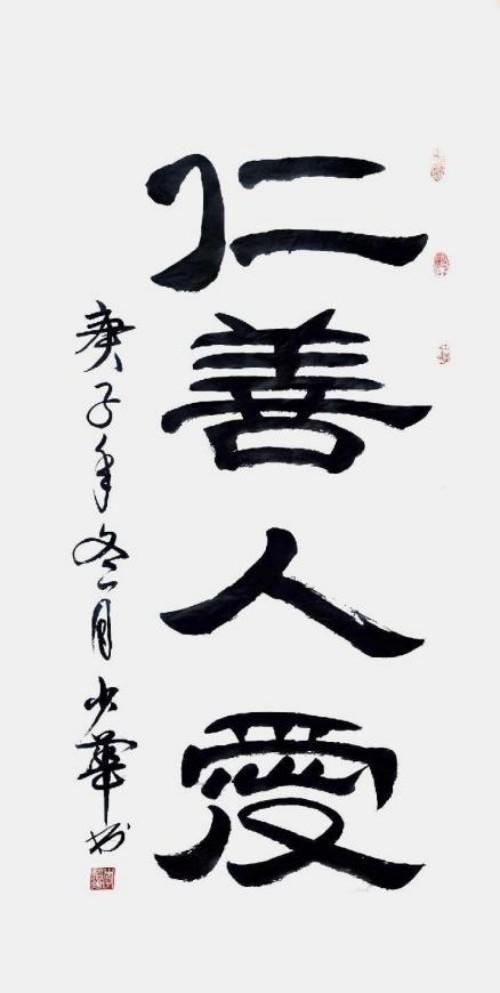 仁善人愛
庚子年冬月少華书